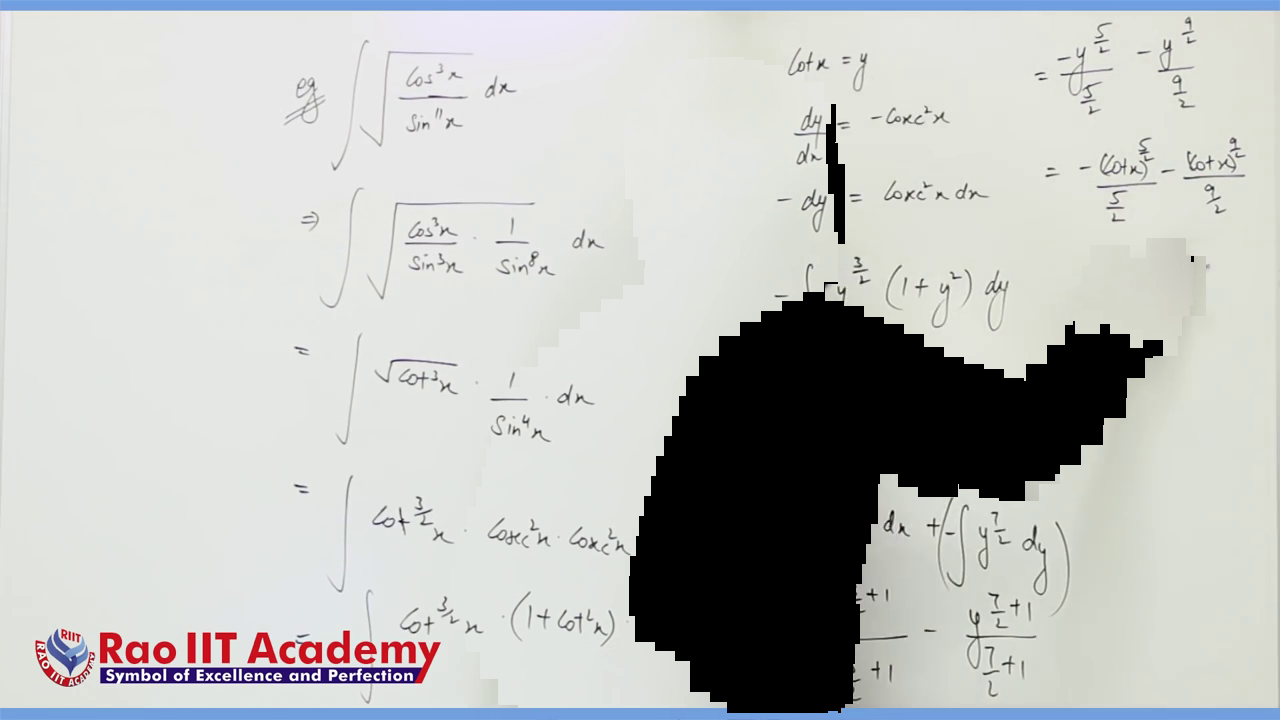 eg ∫ √(cos³x / sin¹¹x) dx
⇒ ∫ √(cos³x / sin³x · 1 / sin⁸x) dx
= ∫ √cot³x · 1 / sin⁴x · dx
= ∫ cot^(3/2) x · cosec²x · cosec²x
= ∫ cot^(3/2) x · (1 + cot²x) ·
cotx = y
dy/dx = -cosec²x
- dy = cosec²x dx
- ∫ y^(3/2) (1 + y²) dy
dx + (-∫ y^(7/2) dy)
+1 / +1 - y^(7/2 + 1) / (7/2 + 1)
= -y^(5/2) / (5/2) - y^(9/2) / (9/2)
= -(cotx)^(5/2) / (5/2) - (cotx)^(9/2) / (9/2)
RIIT
RAO IIT ACADEMY
Rao IIT Academy
Symbol of Excellence and Perfection